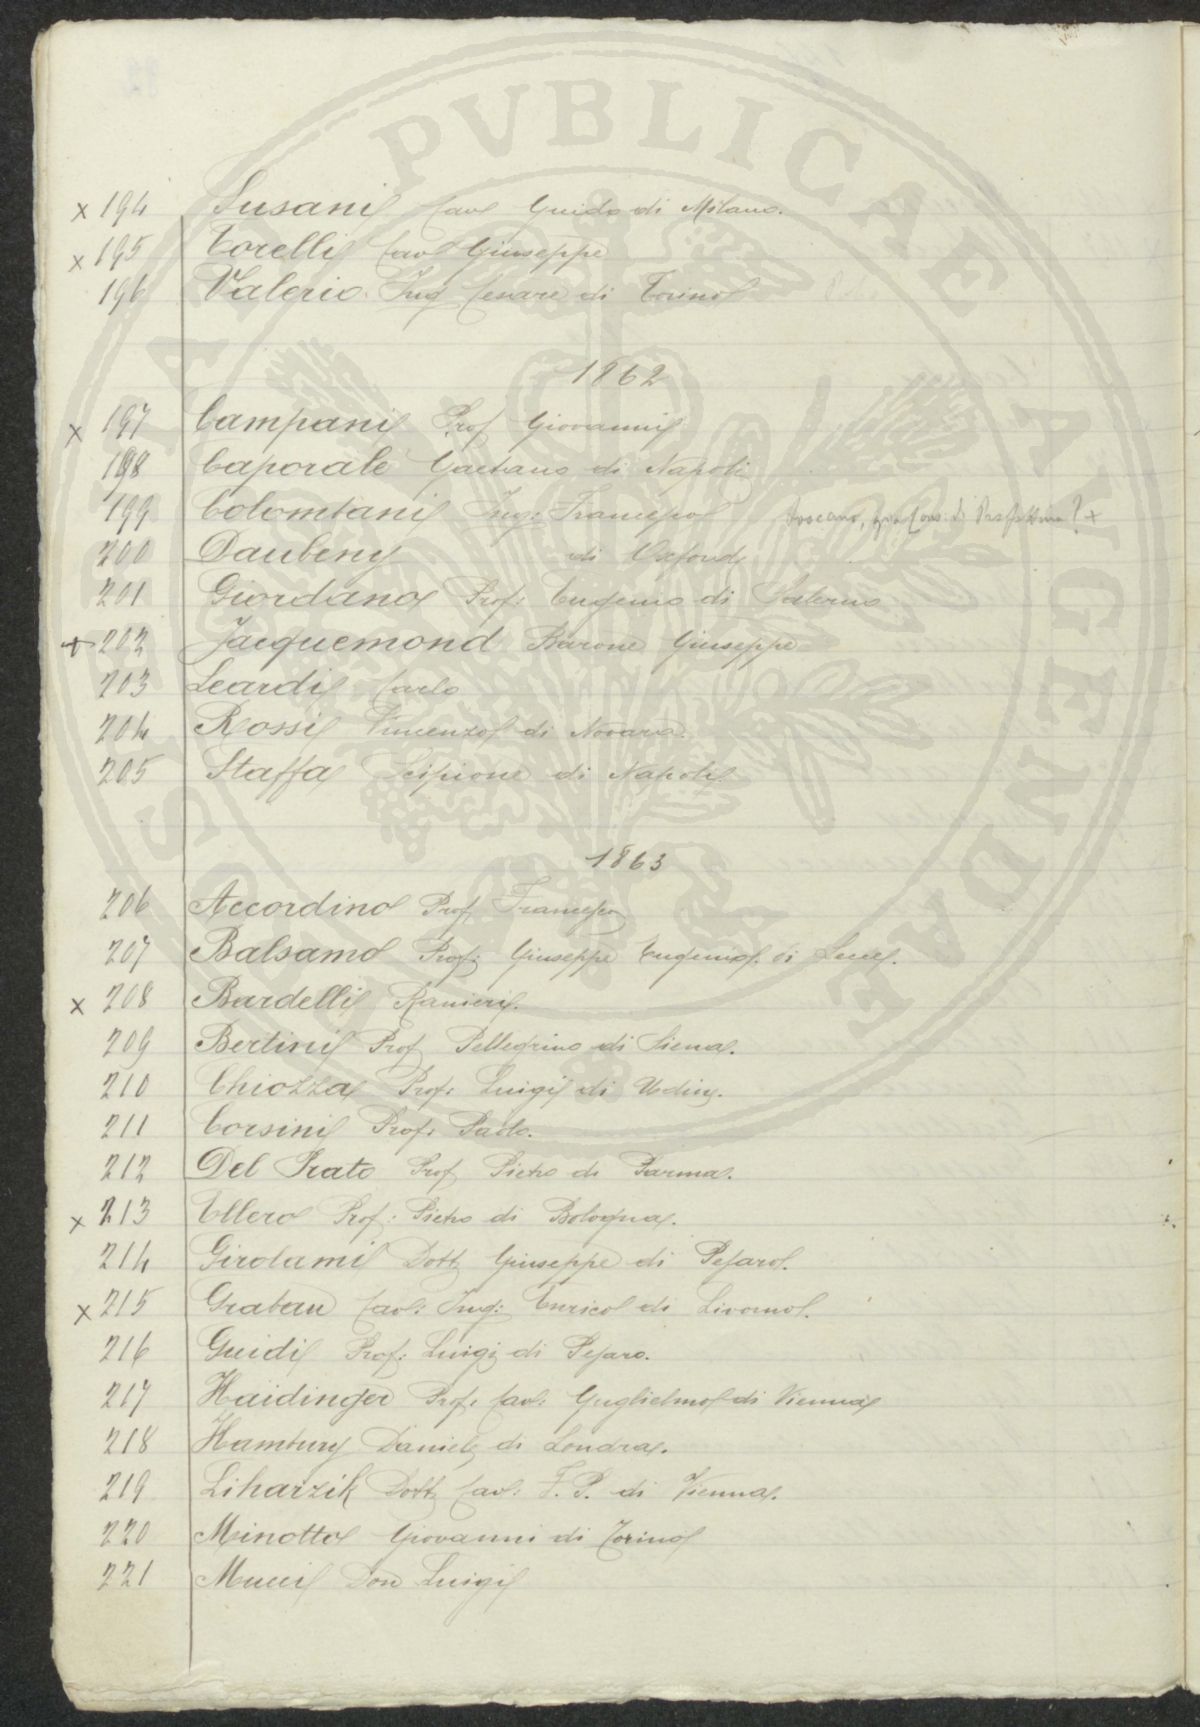 x 194 Susani Cav Guido di Milano.
x 195 Torelli Cav Giuseppe
196 Valerio Ing Cesare di Torino
1862
x 197 Campani Prof Giovanni
198 Caporale Gaetano di Napoli
199 Colombani Ing: Francesco toscano, di Prefettura? +
200 Daubeny di Oxford
201 Giordano Prof: Eugenio di Salerno
+ 202 Jacquemond Barone Giuseppe
203 Leardi Carlo
204 Rossi Vincenzo di Novara
205 Staffa Scipione di Napoli
1863
206 Accordino Prof Francesco
207 Balsamo Prof: Giuseppe Eugenio. di Lecce.
x 208 Bardelli Ranieri.
209 Bertini Prof Pellegrino di Siena.
210 Chiozza Prof: Luigi di Udine.
211 Corsini Prof: Paolo.
212 Del Prato Prof Pietro di Parma.
x 213 Ellero Prof: Pietro di Bologna.
214 Girolami Dott Giuseppe di Pesaro.
x 215 Grabau Cav: Ing: Enrico di Livorno.
216 Guidi Prof: Luigi di Pesaro.
217 Haidinger Prof: Cav: Guglielmo di Vienna
218 Hambury Daniele di Londra.
219 Liharzik Dott Cav: F. P. di Vienna.
220 Minotto Giovanni di Torino
221 Mucci Don Luigi
PUBLICAE AUGENDAE